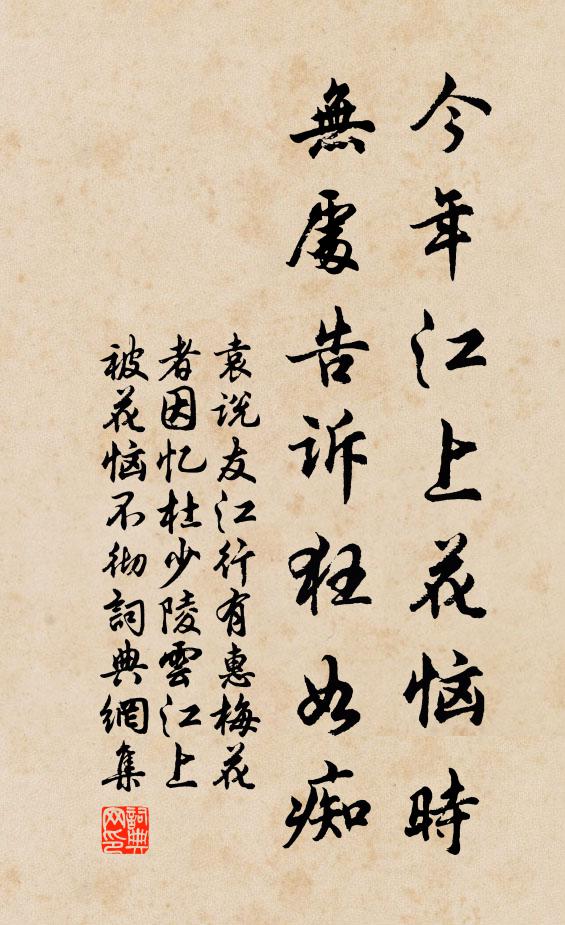 今年江上花恼時
無處告诉狂如痴
袁说友江行有惠梅花
者因忆杜少陵雲江上
被花恼不彻詞典網集
詞典网印